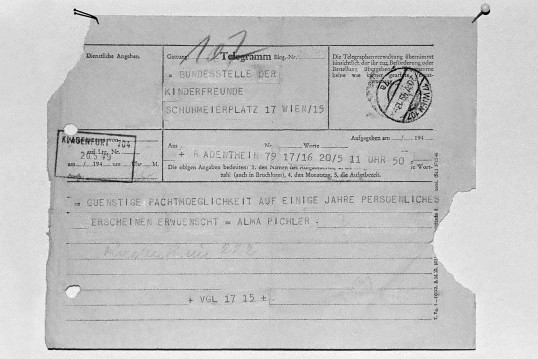 197
Dienstliche Angaben.
Gattung
Telegramm
Die Telegraphenverwaltung übernimmt
hinsichtlich der ihr zur Beförderung oder
Bestellung übergebenen
keine wie immer geartete
= BUNDESSTELLE DER
KINDERFREUNDE
SCHUHMEIERPLATZ 17 WIEN/15
KLAGENFURT 104
20.5.49
Aus
Nr.
Worte
Aufgegeben am
194
+ RADENTHEIN 79 17/16 20/5 11 UHR 50
Die obigen Angaben bedeuten: 1. den Namen des
zahl (auch in Bruchform), 4. den Monatstag, 5. die Aufgabezeit.
= GUENSTIGE PACHTMOEGLICHKEIT AUF EINIGE JAHRE PERSOENLICHES
ERSCHEINEN ERWUENSCHT = ALMA PICHLER -
+ VGL 17 15 +